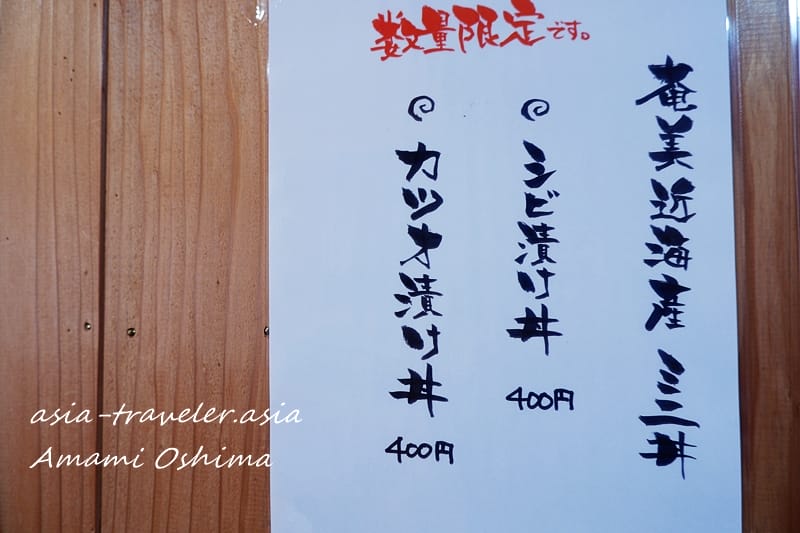 数量限定です。
奄美近海産 ミニ丼
シビ漬け丼
400円
カツオ漬け丼
400円
asia-traveler.asia
Amami Oshima